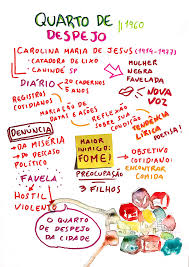 QUARTO DE
DESPEJO // 1960
CAROLINA MARIA DE JESUS (1914-1977)
- CATADORA DE LIXO
- CANINDÉ SP
MULHER
NEGRA
FAVELADA
DIÁRIO
20 CADERNOS
5 ANOS
NOVA
VOZ
REGISTROS
COTIDIANOS
MARIAÇÃO DE
DATAS E AÇÕES
REFLEXÃO
SOBRE SUA
CONDIÇÃO
TENDÊNCIA
LÍRICA
POETISA!
DENÚNCIA
DA MISÉRIA
DO DESCASO
POLÍTICO
MAIOR
INIMIGO:
FOME!
OBJETIVO
COTIDIANO:
ENCONTRAR
COMIDA
PREOCUPAÇÃO
3 FILHOS
FAVELA
HOSTIL
VIOLENTO
O QUARTO
DE DESPEJO
DA CIDADE